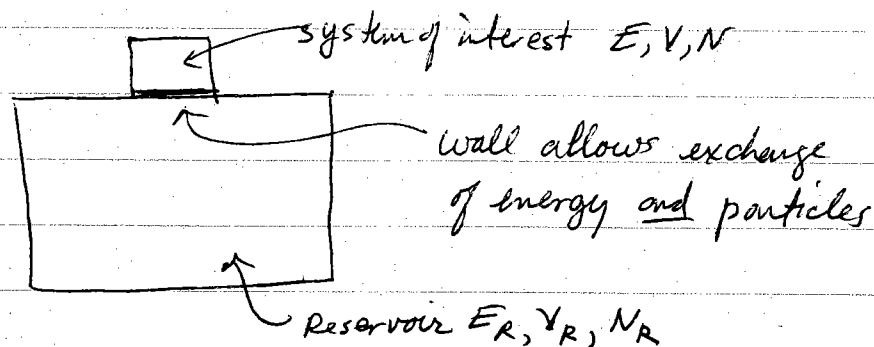 system of interest E, V, N
wall allows exchange
of energy and particles
Reservoir E_R, V_R, N_R